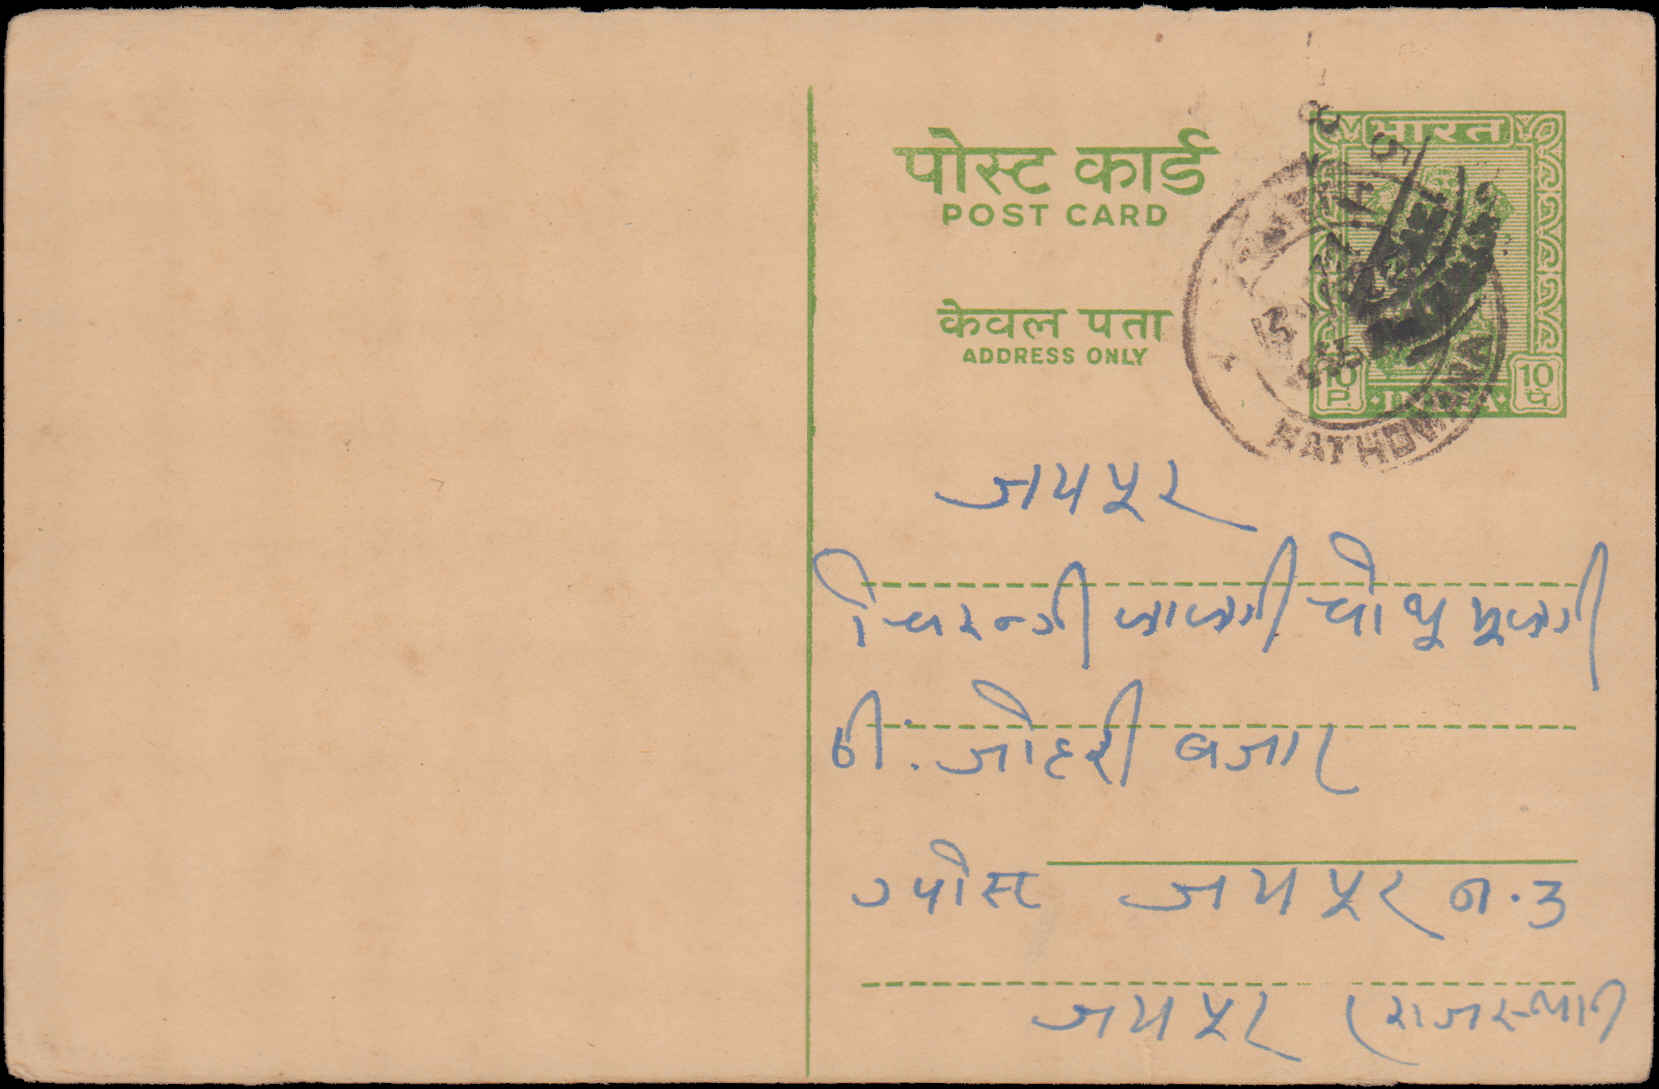 पोस्ट कार्ड
POST CARD
भारत
केवल पता
ADDRESS ONLY
10 P.
INDIA
10 प
जयपुर
चिरन्जी लालजी चोथमलजी
जोहरी बजार
पोस्ट जयपुर न. 3
जयपुर (राजस्थान)